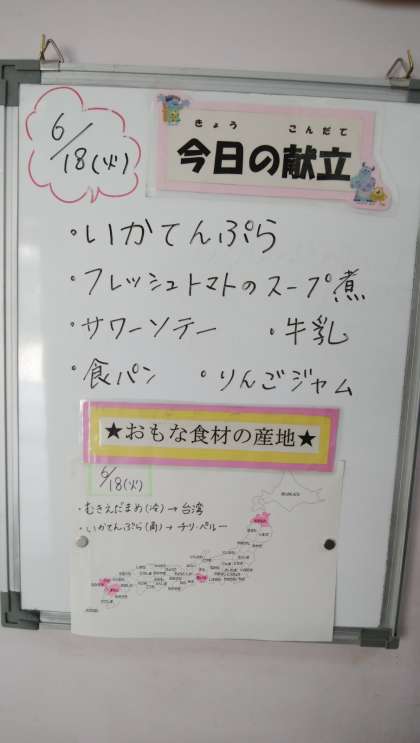 6/18(火)
きょう こんだて
今日の献立
・いかてんぷら
・フレッシュトマトのスープ煮
・サワーソテー ・牛乳
・食パン ・りんごジャム
★おもな食材の産地★
6/18(火)
・むきえだまめ(冷)→台湾
・いかてんぷら(肉)→チリ・ペルー